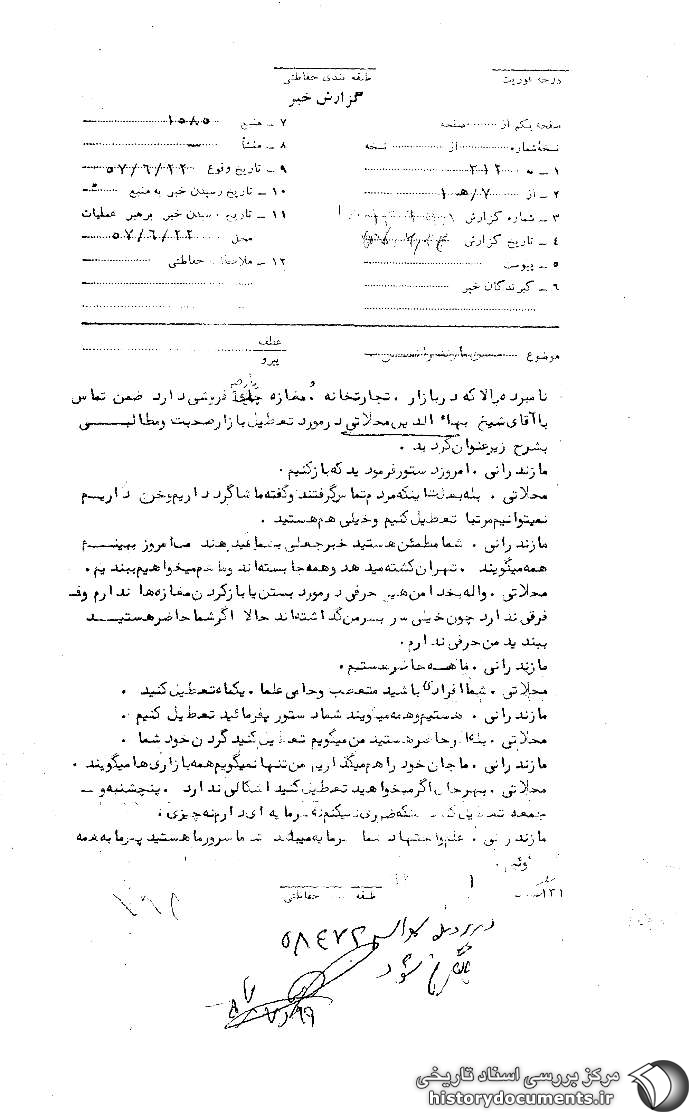 درجه فوریت
طبقه بندی حفاظتی
گزارش خبر
صفحه یکم از صفحه
نسخه شماره از نسخه
۱ - به ۳۱۲
۲ - از ۷/ ه‍ ۱
۳ - شماره گزارش
۴ - تاریخ گزارش
۵ - پیوست
۶ - گیرندگان خبر
۷ - منبع ۱۵۸۵
۸ - منشأ
۹ - تاریخ وقوع ۵۷/۶/۲۲
۱۰ - تاریخ رسیدن خبر به منبع
۱۱ - تاریخ رسیدن خبر برهبر عملیات
محل ۵۷/۶/۲۲
۱۲ - ملاحظات حفاظتی
موضوع
عطف
پیرو
نامبرده بالا که در بازار، تجارتخانه و مغازه فروشی دارد ضمن تماس
با آقای شیخ بهاء الدین محلاتی در مورد تعطیل بازار صحبت و مطالبی
بشرح زیر عنوان گردید.
مازندرانی. امروز دستور فرمودید که باز کنیم.
محلاتی. بله بعلت اینکه مردم تماس گرفتند و گفته ما شاگرد داریم و خرج داریم
نمیتوانیم مرتبا تعطیل کنیم و خیلی هم هستید.
مازندرانی. شما مطمئن هستید خبر جعلی بشما میدهند ما امروز ببینیم
همه میگویند. تهران کشته میدهد و همه جا بسته اند و ما هم میخواهیم ببندیم.
محلاتی. واله بخدا من هیچ حرفی در مورد بستن یا باز کردن مغازه ها ندارم و
فرقی ندارد چون خیلی سر بسر من گذاشته اند حالا اگر شما حاضر هستید
ببندید من حرفی ندارم.
مازندرانی. ما همه حاضر هستیم.
محلاتی. شما افرادی باشید متعصب و حامی علما. یکماه تعطیل کنید.
مازندرانی. هستیم و همه میگویند شما دستور بفرمائید تعطیل کنیم.
محلاتی. حاضر هستید من میگویم تعطیل کنید گردن خود شما.
مازندرانی. ما جان خود را هم میگذاریم من تنها نمیگویم همه بازاری ها میگویند.
محلاتی. بهر حال اگر میخواهید تعطیل کنید اشکالی ندارد. پنجشنبه و
جمعه تعطیل کنید منکه ضرری نمیکنم نه سرمایه ای دارم نه چیزی.
مازندرانی. علم و اجتهاد شما سرمایه میباشد شما سرور ما هستید پدر ما بهمه
طبقه بندی حفاظتی
۵۸۴۷۲
بایگانی شود
مرکز بررسی اسناد تاریخی
historydocuments.ir